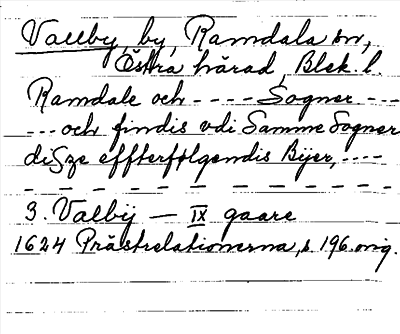 Vallby, by, Ramdala sn,
Östra härad, Blek. l.
Ramdale och - - - - Sogner - - -
- - - och findis vdi Samme Sogner
disze effterfølgendis Bÿer, - - - -
- - - - - - - - - - - - - -
3. Valbÿ — IX gaare
1624 Prästrelationerna, s. 196. orig.